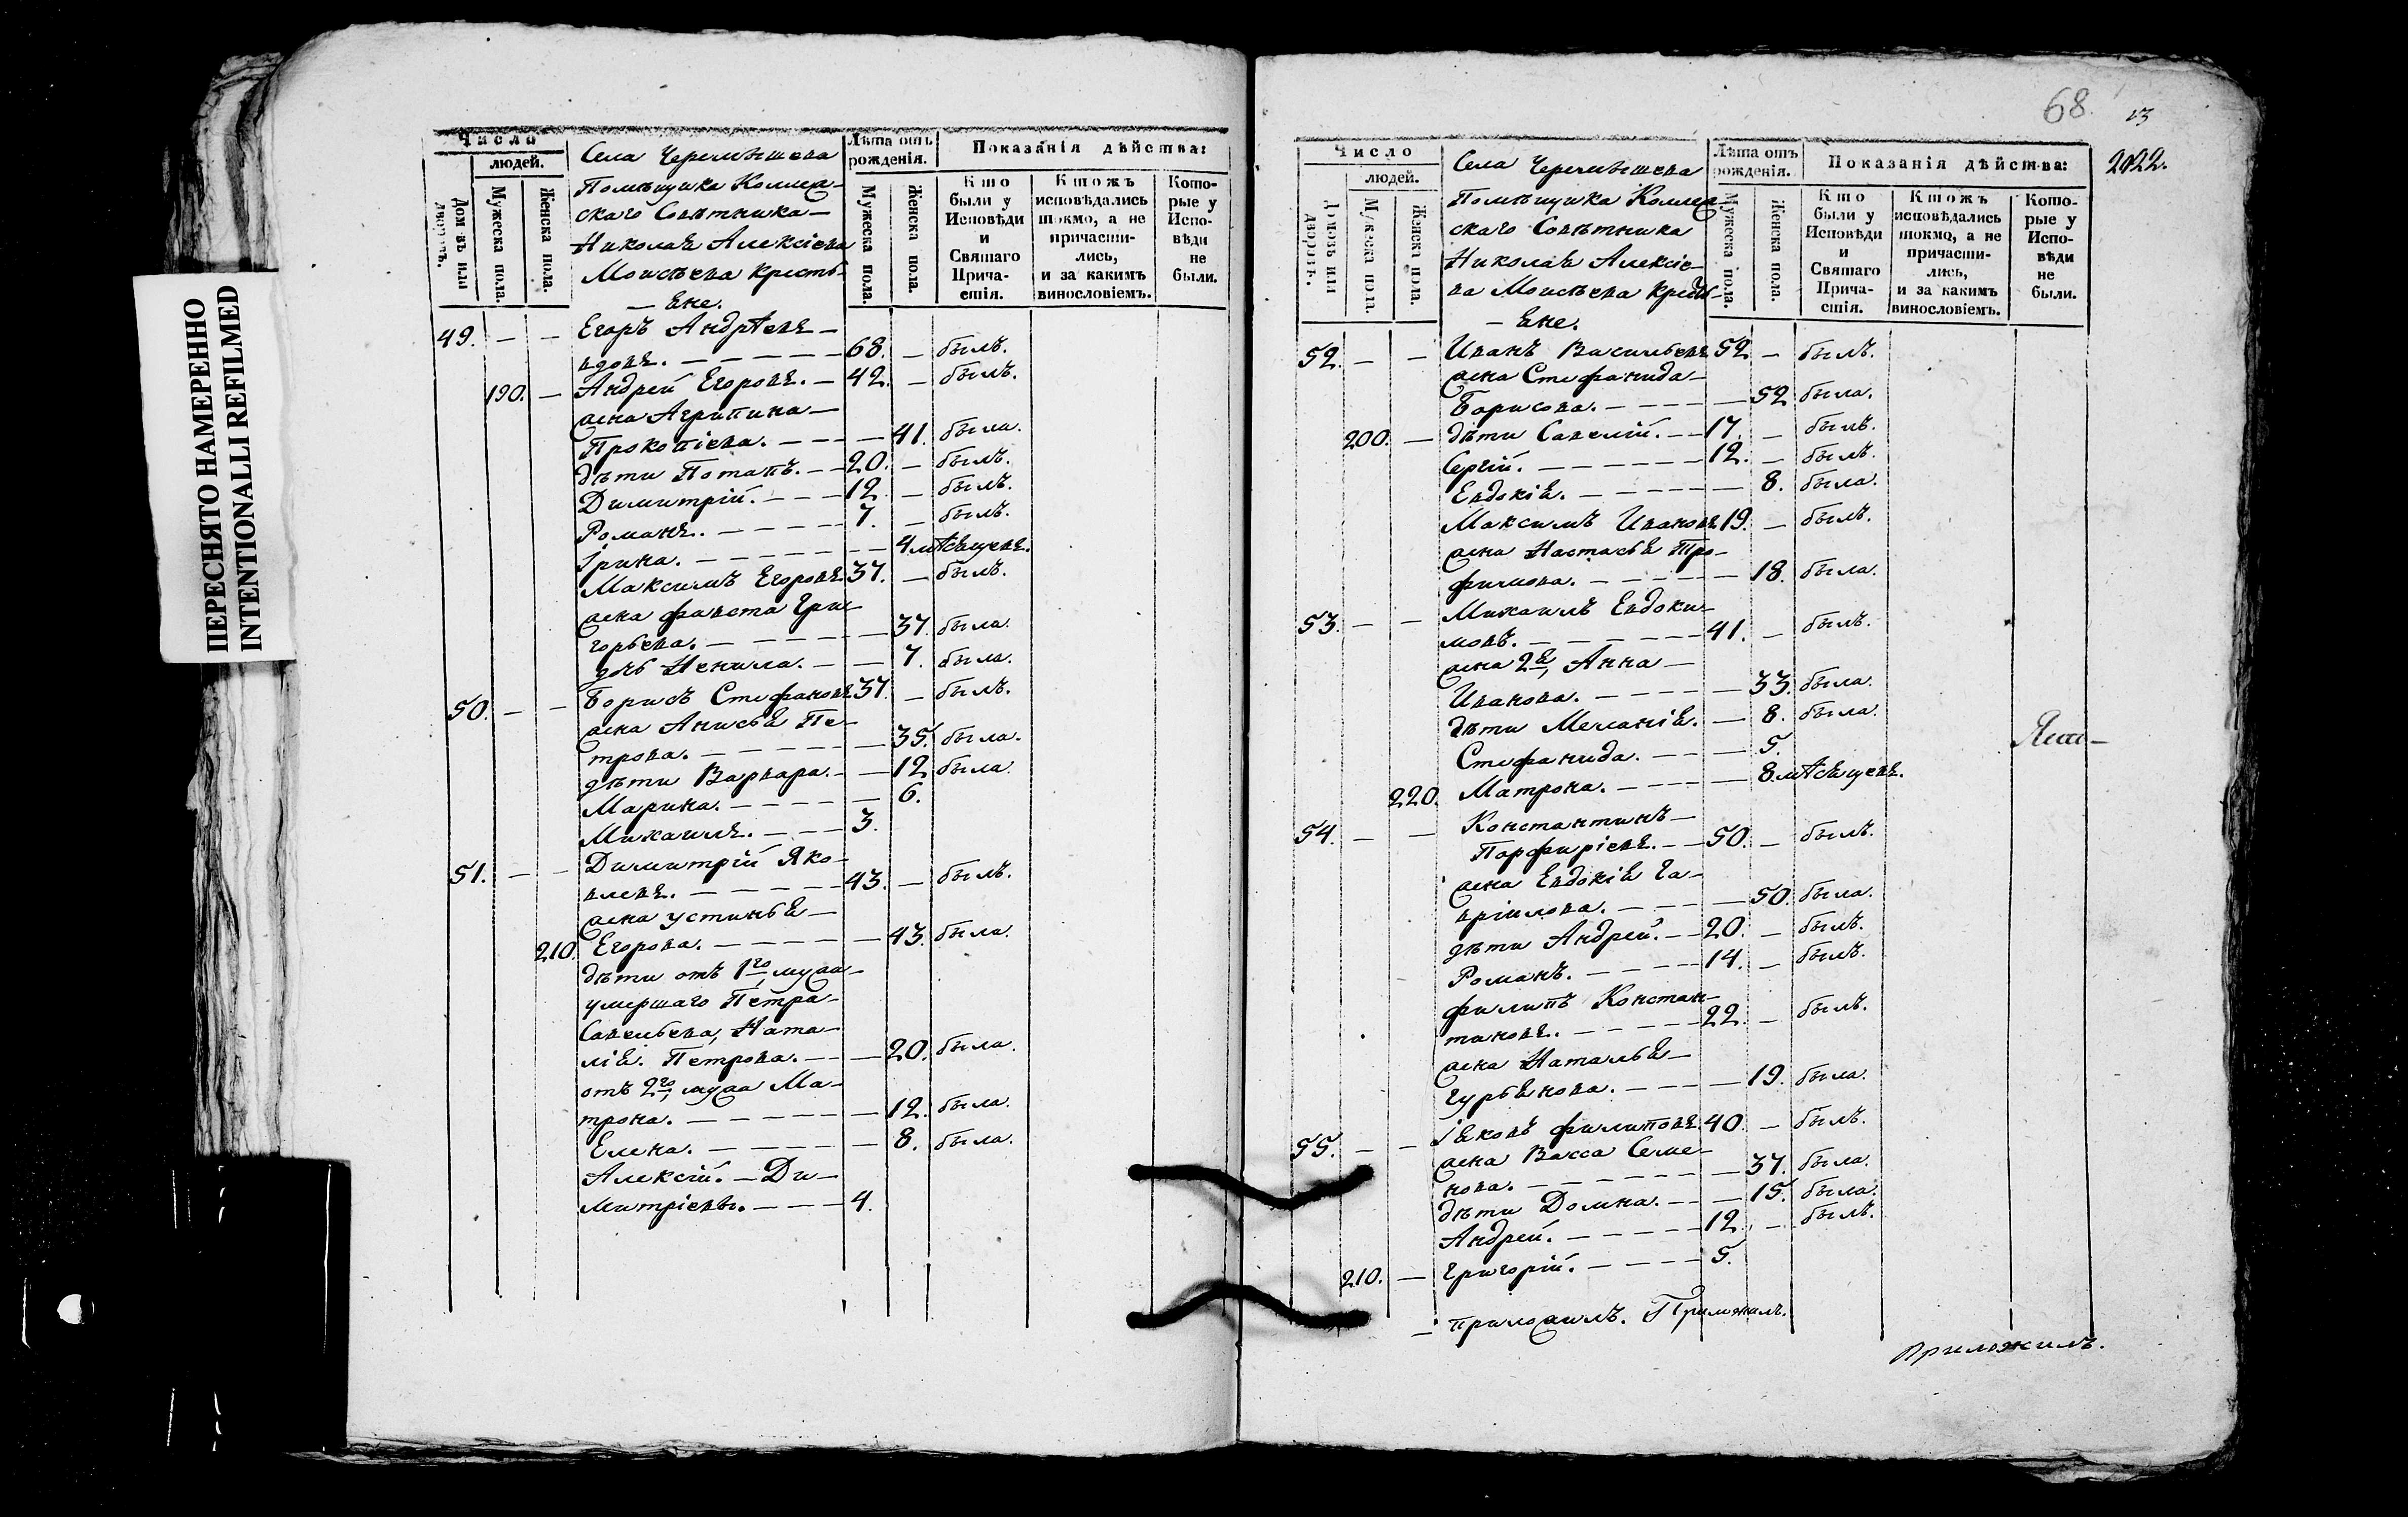 ПЕРЕСНЯТО НАМЕРЕННО
INTENTIONALLI REFILMED
Число
людей.
Домовъ или дворовъ.
Мужеска пола.
Женска пола.
Села Черемѣшева
Помѣщика Коллеж-
скаго Совѣтника
Николая Алексіева
Моисѣева Кресть-
яне.
Лѣта отъ рожденія.
Мужеска пола.
Женска пола.
Показанія дѣйства:
Кто были у Исповѣди и Святаго Прича-стія.
Ктожъ исповѣдались токмо, а не причасти-лись, и за какимъ винословіемъ.
Кото-рые у Испо-вѣди не были.
49. — — Егоръ Андрѣевъ —
вдовъ. — 68. — былъ.
190. — Андрей Егоровъ. — 42. — былъ.
жена Агрипина —
Прокопіева. — 41. была.
дѣти Потапъ. — 20. — былъ.
Димитрій. — 12 — былъ.
Романъ. — 7. — былъ.
Ірина. — 4 мѣсяцевъ.
Максимъ Егоровъ 37. — былъ.
жена Фавста Гри-
горьева. — 37. была.
дочь Ненила. — 7. была.
50. — — Борисъ Стефановъ 37. — былъ.
жена Анисья Пе-
трова. — 35. была.
дѣти Варвара. — 12 была.
Марина. — 6.
Михаилъ. — 3.
51. — — Димитрій Яко-
влевъ. — 43. — былъ.
жена Устинья —
210. Егорова. — 43. была.
дѣти отъ 1го мужа
умершаго Петра
Савельева, Ната-
лія Петрова. — 20. была.
отъ 2го мужа Ма-
трона. — 12. была.
Елена. — 8. была.
Алексій. — Ди-
митріевы. — 4.
68.
2022.
Число
людей.
Домовъ или дворовъ.
Мужеска пола.
Женска пола.
Села Черемѣшева
Помѣщика Коллеж-
скаго Совѣтника
Николая Алексіе-
ва Моисѣева Кресть-
яне.
Лѣта отъ рожденія.
Мужеска пола.
Женска пола.
Показанія дѣйства:
Кто были у Исповѣди и Святаго Прича-стія.
Ктожъ исповѣдались токмо, а не причасти-лись, и за какимъ винословіемъ.
Кото-рые у Испо-вѣди не были.
52. — — Иванъ Васильевъ 52 — былъ.
жена Стефанида —
Борисова. — 52 была.
200. — дѣти Савелій. — 17. — былъ.
Сергій. — 12. — былъ.
Евдокія. — 8. была.
Максимъ Ивановъ 19. — былъ.
жена Настасья Тро-
фимова. — 18. была.
53. — — Михаилъ Евдоки-
мовъ. — 41. — былъ.
жена 2я, Анна —
Иванова. — 33. была.
дѣти Меланія. — 8. была.
Стефанида. — 5.
220. Матрона. — 8. мѣсяцевъ.
54. — — Константинъ —
Порфиріевъ. — 50. — былъ.
жена Евдокія Га-
вріилова. — 50. была.
дѣти Андрей. — 20. — былъ.
Романъ. — 14. — былъ.
Филипъ Констан-
тиновъ. — 22. — былъ.
жена Наталья —
Гурьянова. — 19. была.
55. — — Іяковъ Филиповъ 40. — былъ.
жена Васса Семе-
нова. — 37. была.
дѣти Домна. — 15. была.
Андрей. — 12. — былъ.
210. — Григорій. — 5.
приложилъ. Приложилъ.
приложилъ.